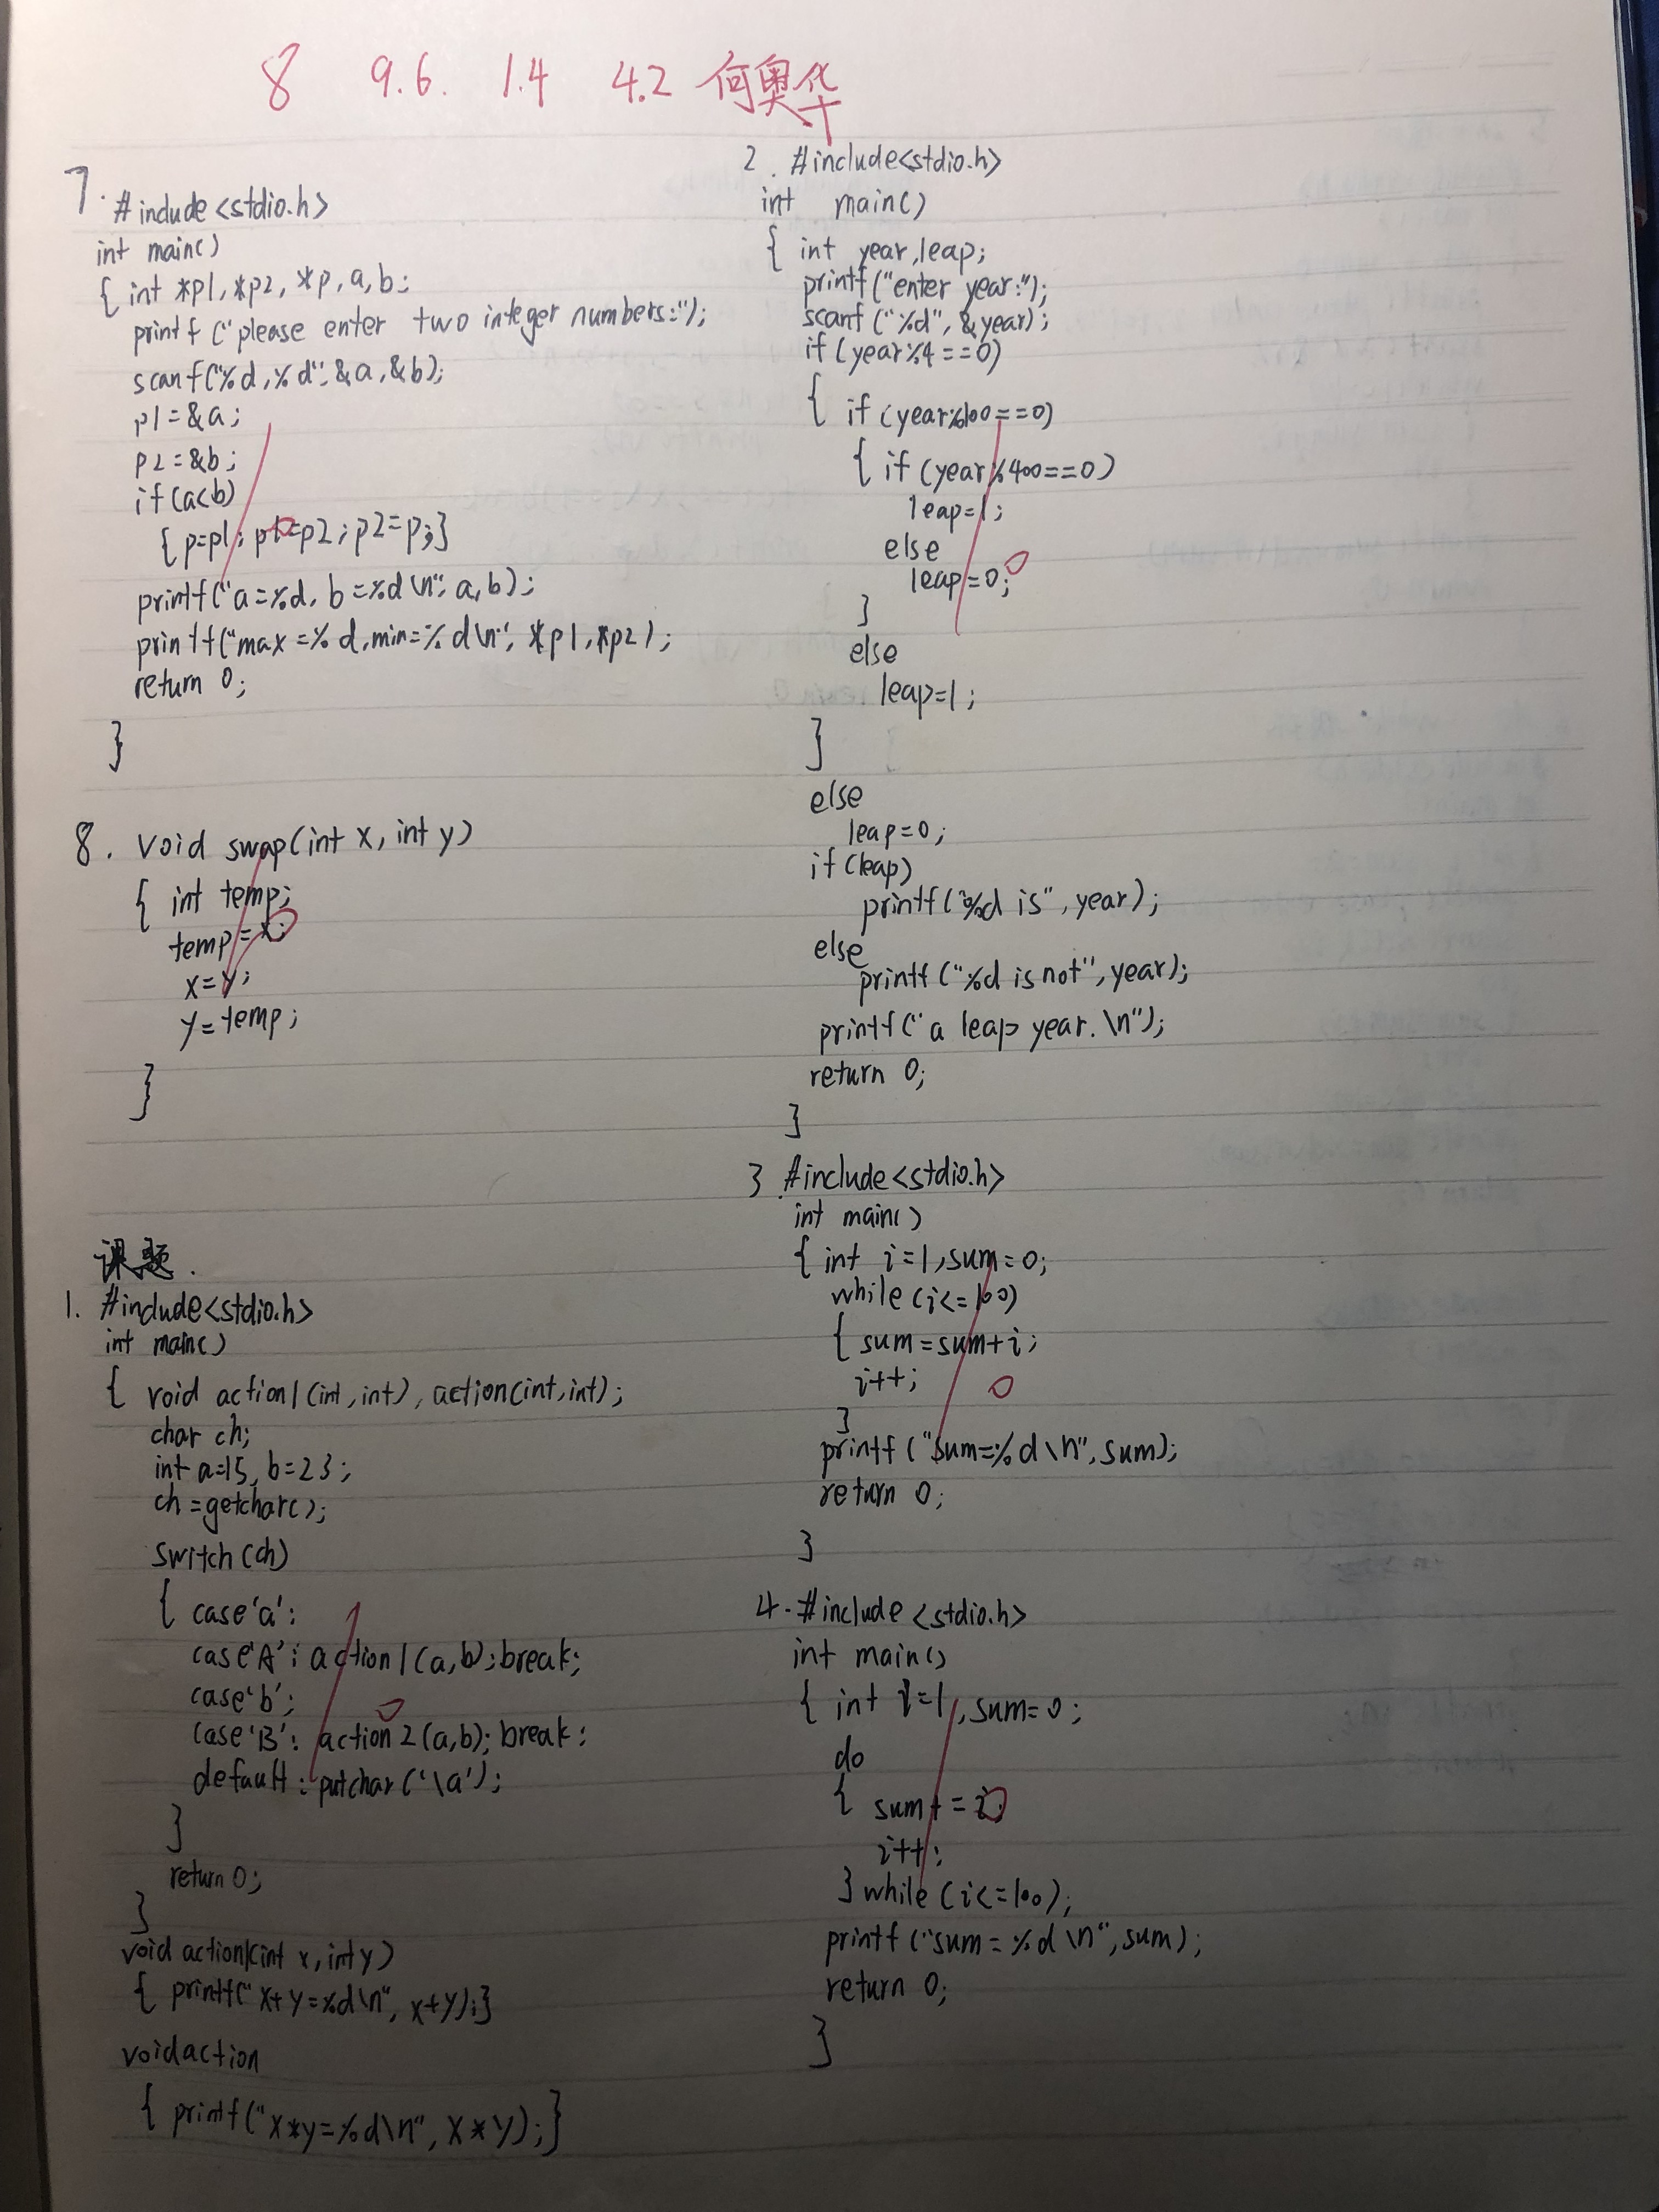 8 9.6. 1.4 4.2 何奥华
7. #include<stdio.h>
int main()
{ int *p1, *p2, *p, a, b;
printf("please enter two integer numbers:");
scanf("%d,%d",&a,&b);
p1=&a;
p2=&b;
if(a<b)
{p=p1; p1=p2; p2=p;}
printf("a=%d, b=%d\n", a,b);
printf("max=%d,min=%d\n", *p1,*p2);
return 0;
}
8. void swap(int x, int y)
{ int temp;
temp=x;
x=y;
y=temp;
}
课题.
1. #include<stdio.h>
int main()
{ void action1(int,int), action(int,int);
char ch;
int a=15, b=23;
ch=getchar();
switch(ch)
{ case'a':
case'A': action1(a,b);break;
case'b';
case'B': action2(a,b); break;
default: putchar('\a');
}
return 0;
}
void action1(int x, int y)
{ printf("x+y=%d\n", x+y);}
void action
{ printf("x*y=%d\n", x*y);}
2. #include<stdio.h>
int main()
{ int year,leap;
printf("enter year:");
scanf("%d", &year);
if(year%4==0)
{ if(year%100==0)
{ if(year%400==0)
leap=1;
else
leap=0;
}
else
leap=1;
}
else
leap=0;
if(leap)
printf("%d is", year);
else
printf("%d is not", year);
printf("a leap year.\n");
return 0;
}
3. #include<stdio.h>
int main()
{ int i=1,sum=0;
while(i<=100)
{ sum=sum+i;
i++;
}
printf("sum=%d\n",sum);
return 0;
}
4. #include<stdio.h>
int main()
{ int i=1,sum=0;
do
{ sum+=i;
i++;
}while(i<=100);
printf("sum=%d\n",sum);
return 0;
}